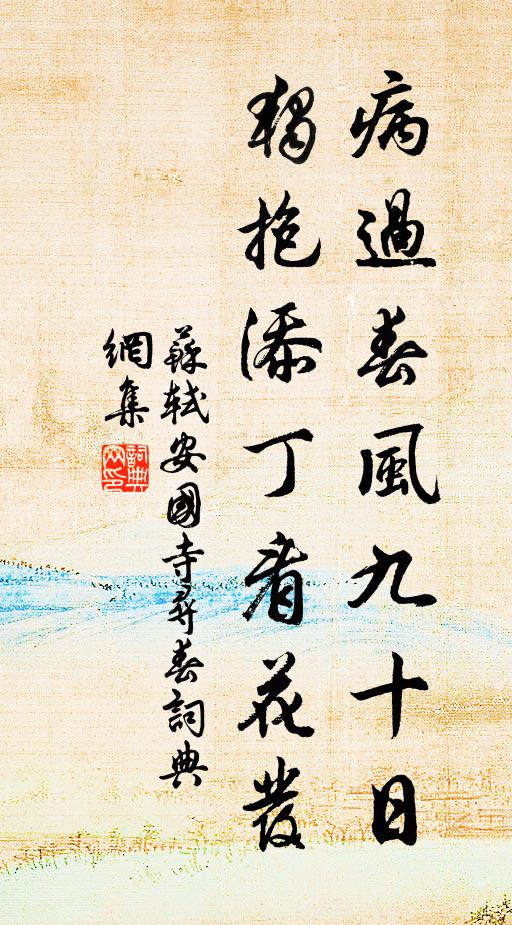 病過春風九十日
獨抱添丁看花發
蘇軾安國寺尋春詞典
網集
詞典
网印